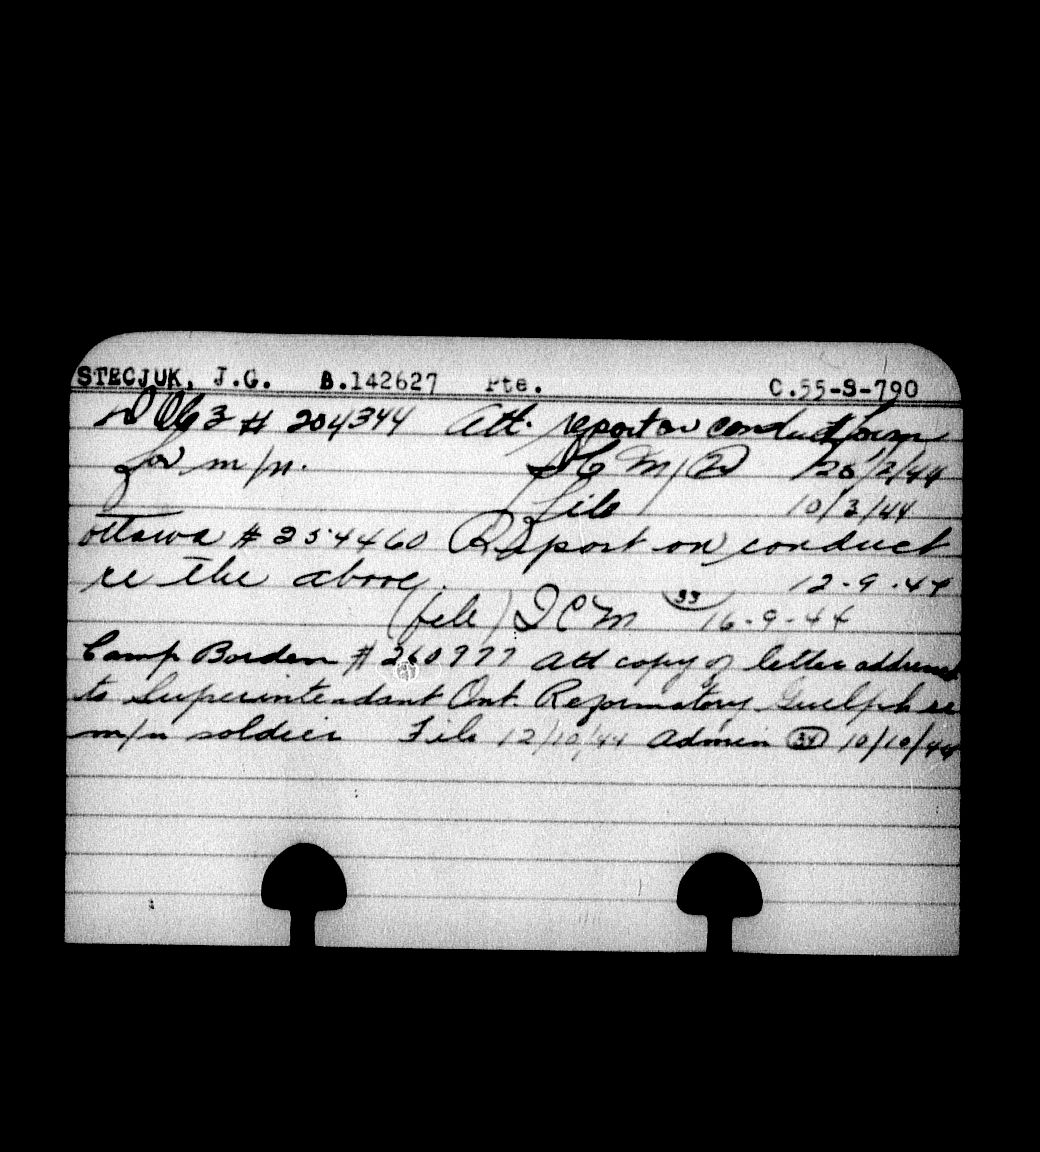 STECJUK, J.G. B.142627 Pte. C.55-S-790
# 204344 Att. report on conduct form
for m/n. 26/2/44
File 10/3/44
Ottawa # 254460 Report on conduct
re the above. 12-9-44
(file) DCM 33 16-9-44
Camp Borden # 260977 Att copy of letter address
to Superintendant Ont. Reformatory Guelph re
m/n soldier File 12/10/44 Admin 34 10/10/44